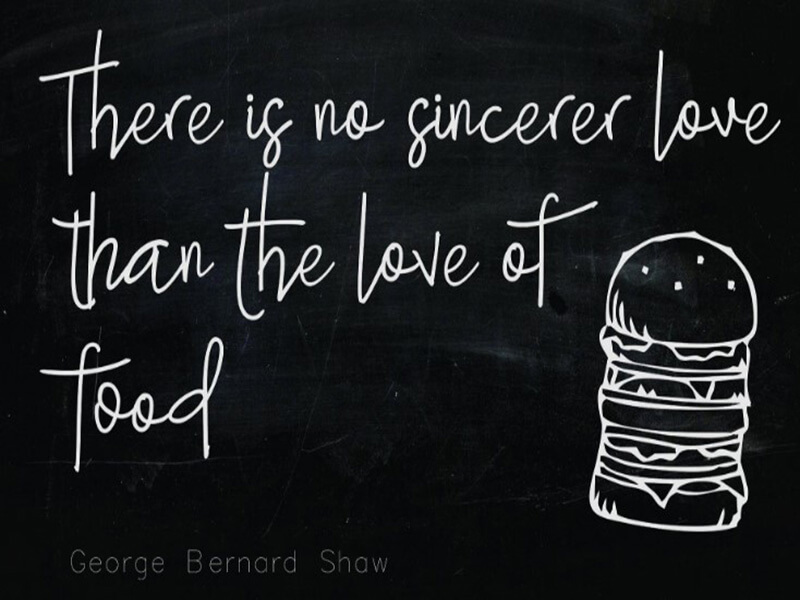 There is no sincerer love
than the love of
food
George Bernard Shaw